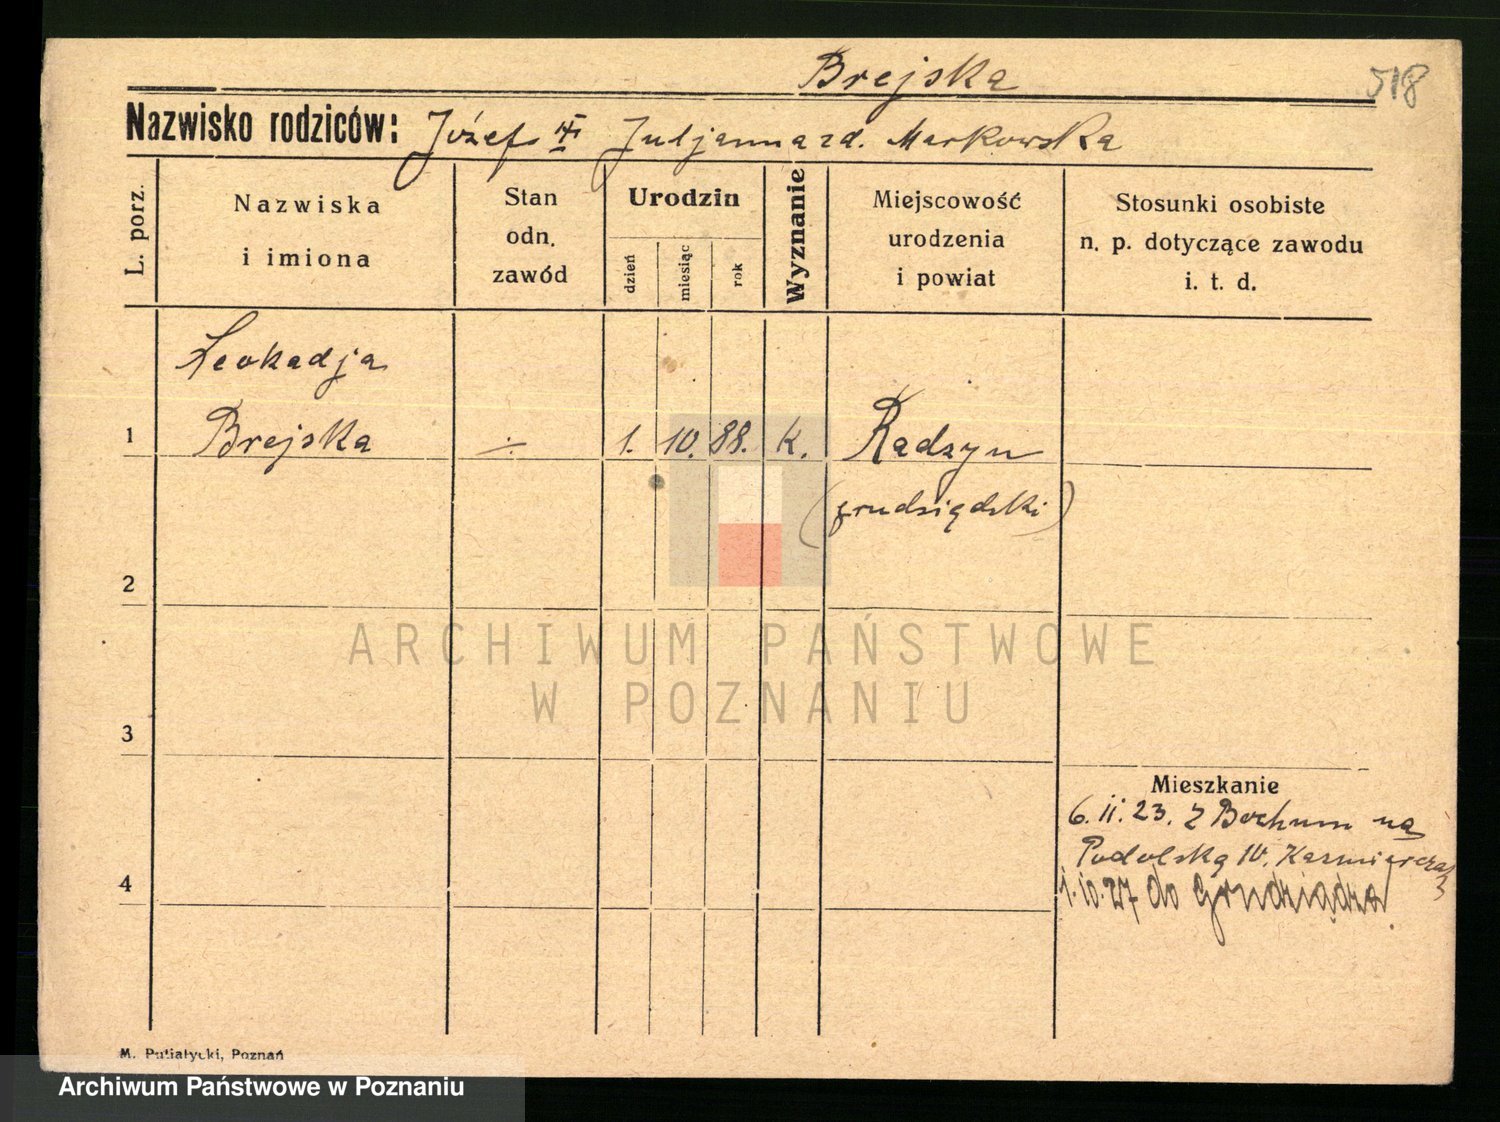 Brejska
518
Nazwisko rodziców: Józef Juljanna zd. Markowska
L. porz.
Nazwiska
i imiona
Stan
odn.
zawód
Urodzin
dzień
miesiąc
rok
Wyznanie
Miejscowość
urodzenia
i powiat
Stosunki osobiste
n. p. dotyczące zawodu
i. t. d.
Leokadja
1 Brejska ÷ 1. 10. 88. k. Radzyn
(grudziądzki)
2
ARCHIWUM PAŃSTWOWE
W POZNANIU
3
Mieszkanie
6.II.23. z Bochum na
Podolską 10.
4
1.10.27 do Grudziądza.
M. Putiatycki, Poznań
Archiwum Państwowe w Poznaniu